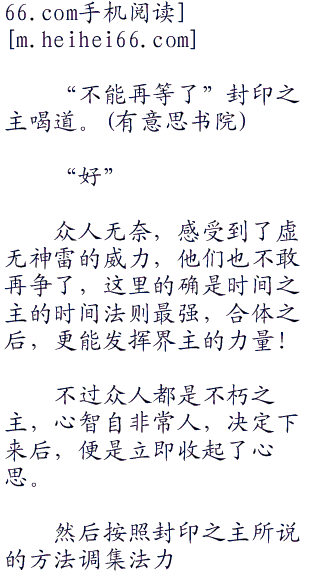 66.com手机阅读]
[m.heihei66.com]
“不能再等了”封印之
主喝道。(有意思书院)
“好”
众人无奈，感受到了虚
无神雷的威力，他们也不敢
再争了，这里的确是时间之
主的时间法则最强，合体之
后，更能发挥界主的力量！
不过众人都是不朽之
主，心智自非常人，决定下
来后，便是立即收起了心
思。
然后按照封印之主所说
的方法调集法力